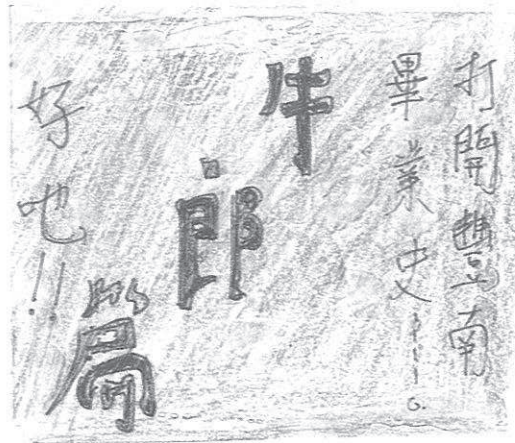 打開豐南
畢業史……。
牛郎篇
好吔!!